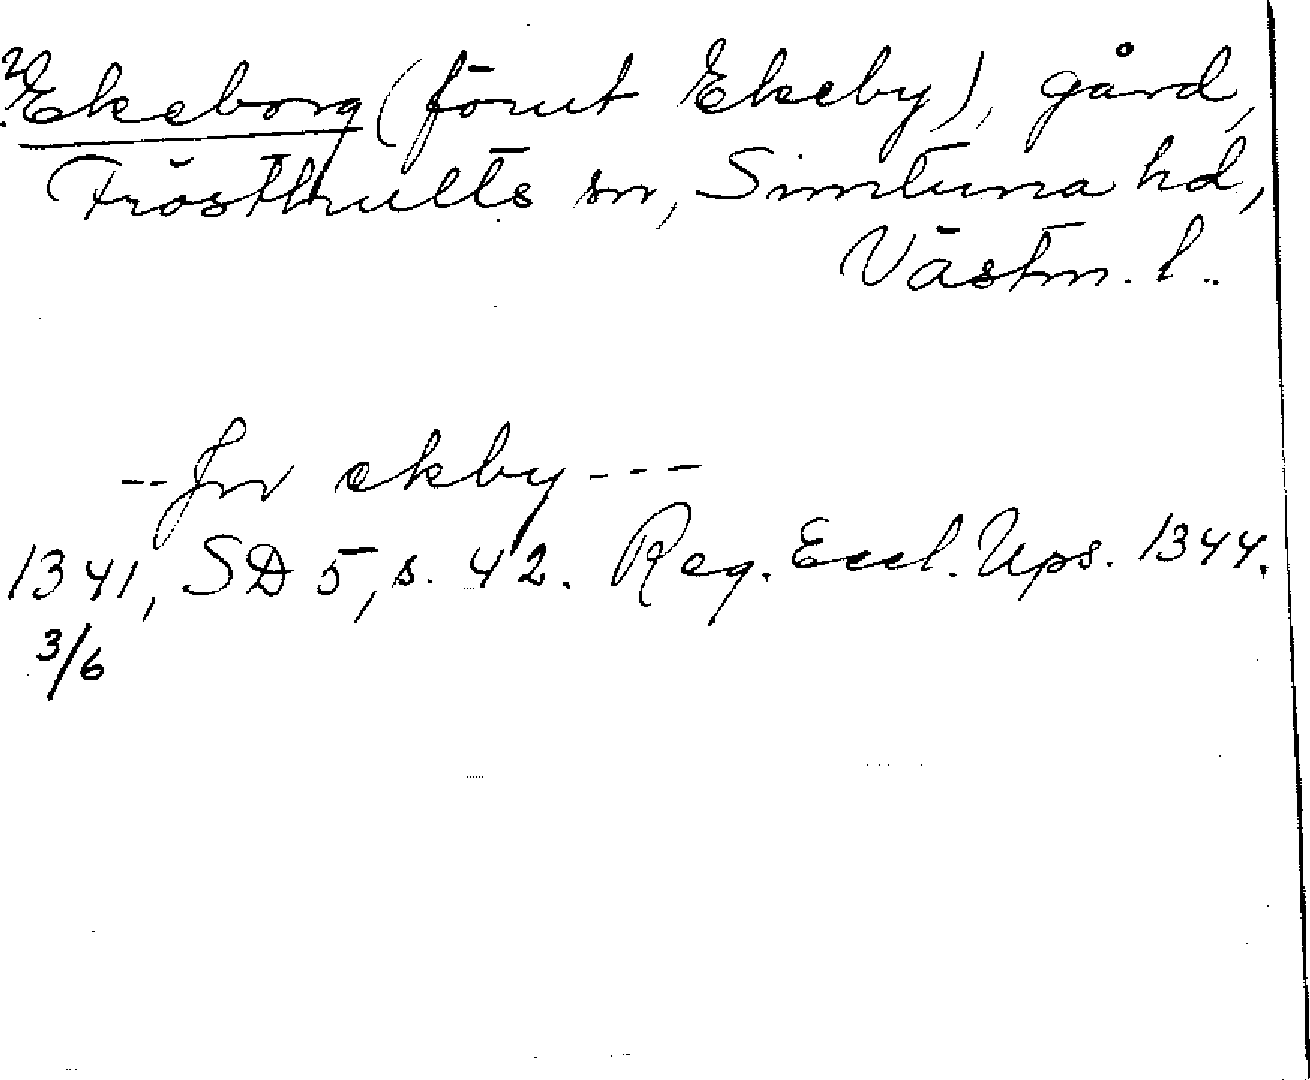 ? Ekeborg (förut Ekeby), gård,
Frösthults sn, Simtuna hd,
Västm. l.
-- In ekby ---
1341, SD 5, s. 42. Reg. Eccl. Ups. 1344.
3/6